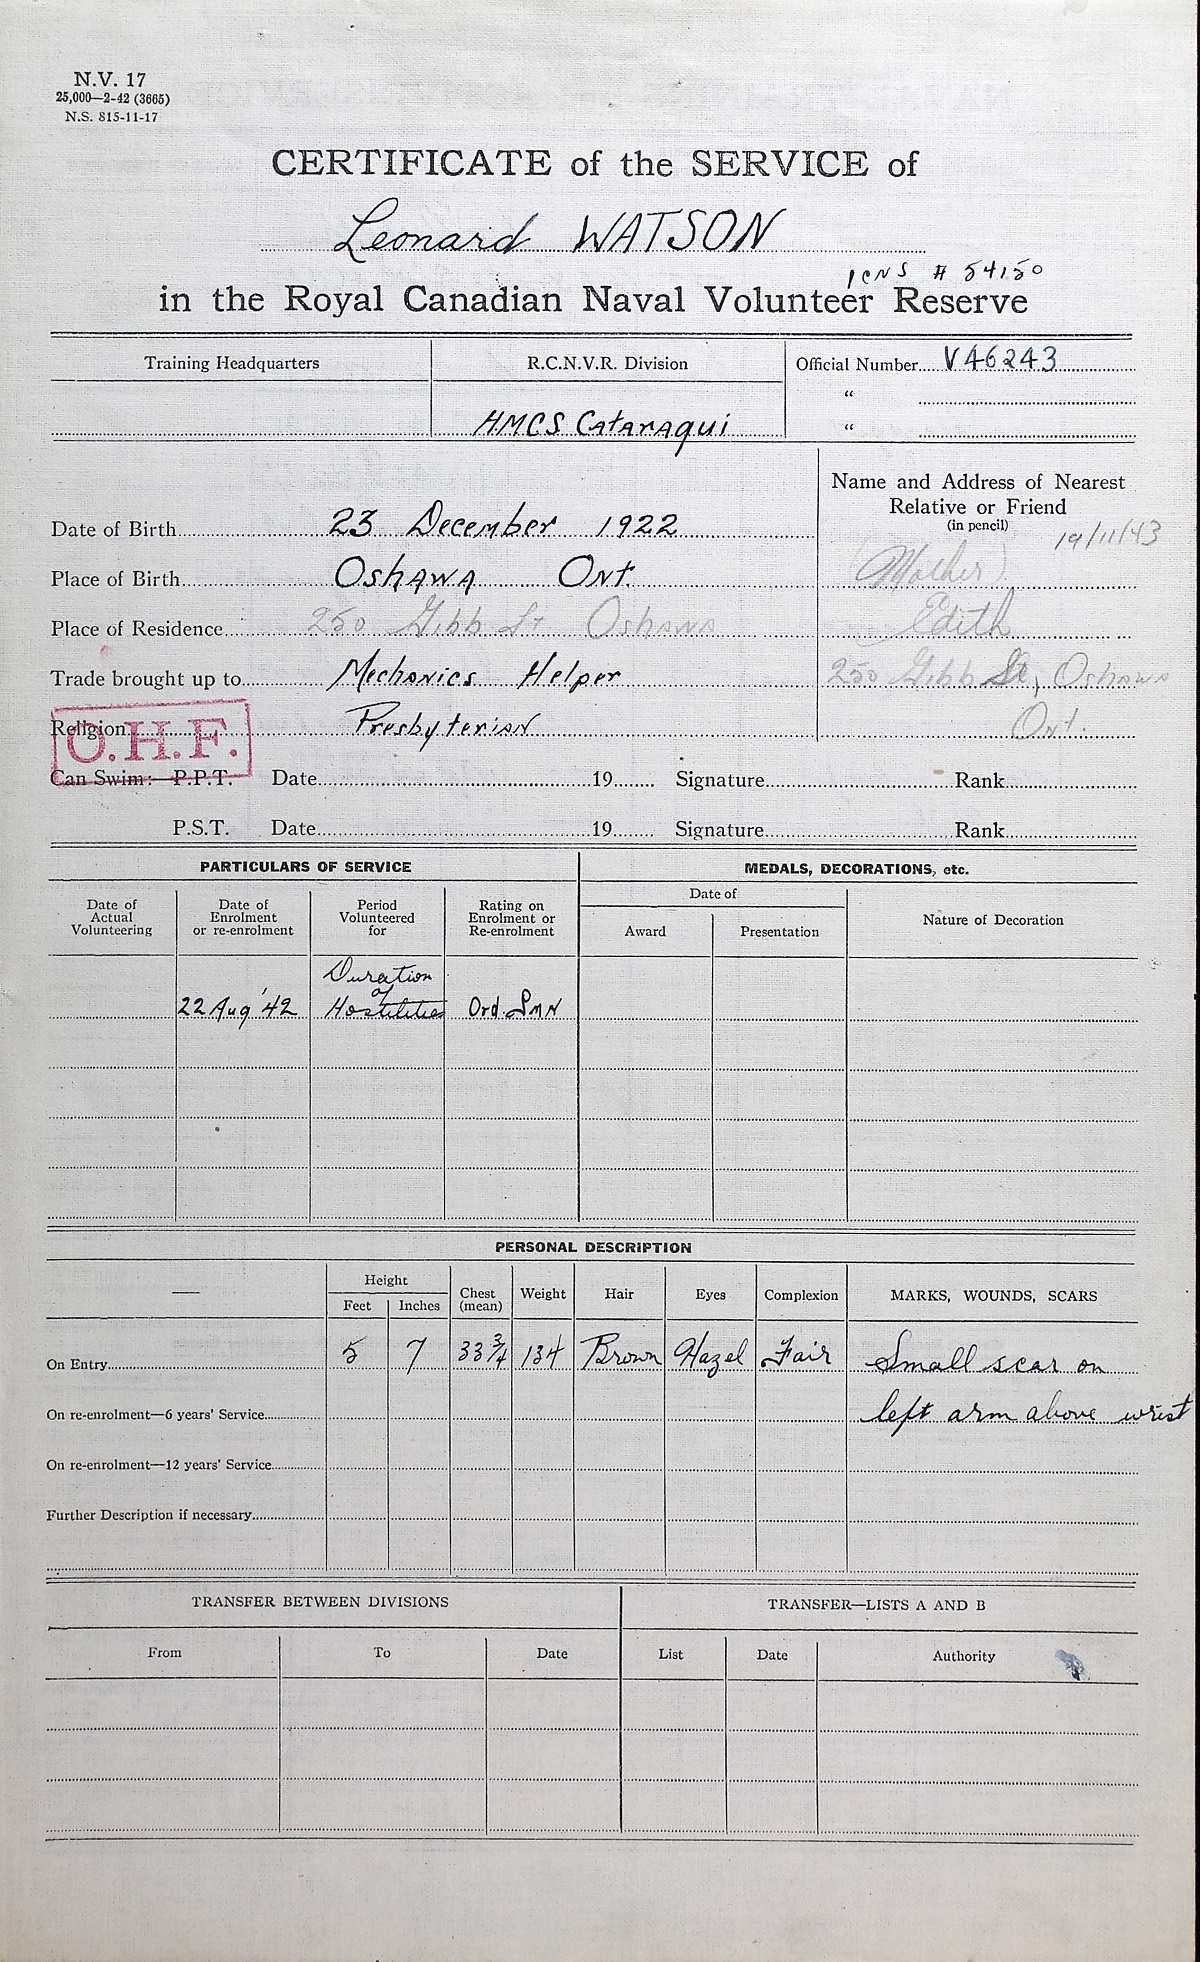 N.V. 17
25,000—2-42 (3665)
N.S. 815-11-17
CERTIFICATE of the SERVICE of
Leonard WATSON
# 54150
in the Royal Canadian Naval Volunteer Reserve
Training Headquarters
R.C.N.V.R. Division
HMCS Cataraqui
Official Number V46243
"
"
Name and Address of Nearest
Relative or Friend
(in pencil)
19/11/43
(Mother)
Edith
250 Gibb St, Oshawa
Ont.
Date of Birth 23 December 1922
Place of Birth Oshawa Ont.
Place of Residence 250 Gibb St Oshawa
Trade brought up to Mechanics Helper
Religion Presbyterian
O.H.F.
Can Swim:— P.P.T. Date 19 Signature Rank
P.S.T. Date 19 Signature Rank
PARTICULARS OF SERVICE
Date of
Actual
Volunteering
Date of
Enrolment
or re-enrolment
Period
Volunteered
for
Rating on
Enrolment or
Re-enrolment
22 Aug '42
Duration
of
Hostilities
Ord. Smn
MEDALS, DECORATIONS, etc.
Date of
Award
Presentation
Nature of Decoration
PERSONAL DESCRIPTION
—
Height
Feet
Inches
Chest
(mean)
Weight
Hair
Eyes
Complexion
MARKS, WOUNDS, SCARS
On Entry 5 7 33 3/4 134 Brown Hazel Fair Small scar on
On re-enrolment—6 years' Service left arm above wrist
On re-enrolment—12 years' Service
Further Description if necessary
TRANSFER BETWEEN DIVISIONS
From
To
Date
TRANSFER—LISTS A AND B
List
Date
Authority